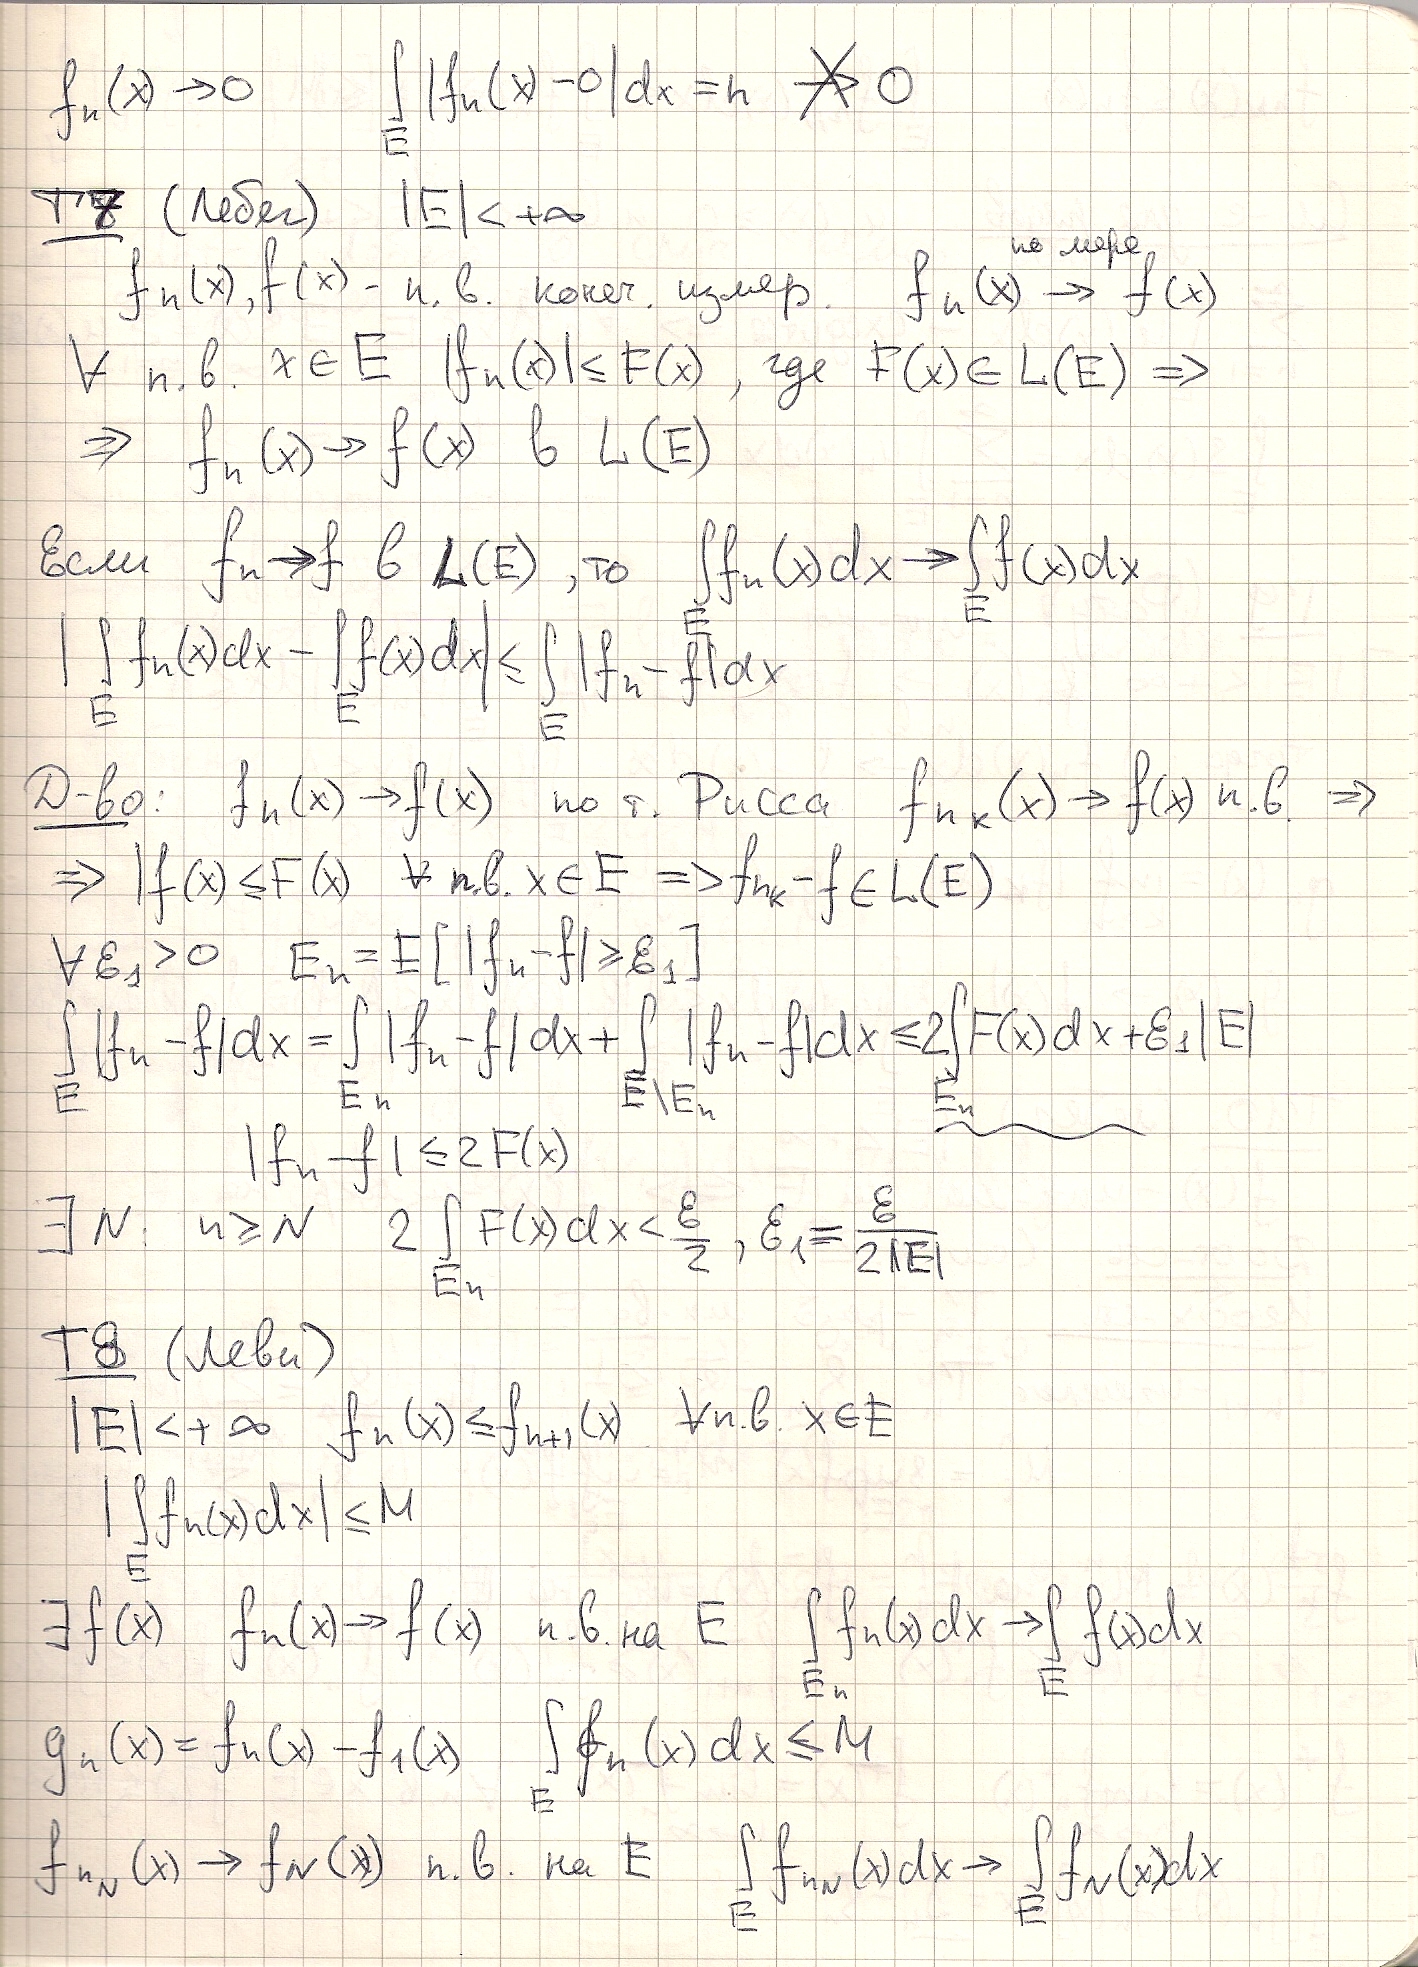 fₙ(x) → 0 ∫_E |fₙ(x) − 0| dx = n ↛ 0
T7 (Лебег) |E| < +∞
fₙ(x), f(x) - п.в. конеч. измер. fₙ(x) →^{по мере} f(x)
∀ п.в. x ∈ E |fₙ(x)| ≤ F(x), где F(x) ∈ L(E) ⇒
⇒ fₙ(x) → f(x) в L(E)
Если fₙ → f в L(E), то ∫_E fₙ(x) dx → ∫_E f(x) dx
|∫_E fₙ(x) dx − ∫_E f(x) dx| ≤ ∫_E |fₙ − f| dx
Д-во: fₙ(x) → f(x) по т. Рисса f_{n_k}(x) → f(x) п.в. ⇒
⇒ |f(x) ≤ F(x) ∀ п.в. x ∈ E ⇒ f_{n_k} − f ∈ L(E)
∀ ε₁ > 0 Eₙ = E[|fₙ − f| ≥ ε₁]
∫_E |fₙ − f| dx = ∫_{Eₙ} |fₙ − f| dx + ∫_{E\Eₙ} |fₙ − f| dx ≤ 2∫_{Eₙ} F(x) dx + ε₁|E|
|fₙ − f| ≤ 2F(x)
∃ N: n ≥ N 2∫_{Eₙ} F(x) dx < ε/2, ε₁ = ε/(2|E|)
T8 (Леви)
|E| < +∞ fₙ(x) ≤ f_{n+1}(x) ∀ п.в. x ∈ E
|∫_E fₙ(x) dx| ≤ M
∃ f(x) fₙ(x) → f(x) п.в. на E ∫_{Eₙ} fₙ(x) dx → ∫_E f(x) dx
gₙ(x) = fₙ(x) − f₁(x) ∫_E fₙ(x) dx ≤ M
f_{n_N}(x) → f_N(x) п.в. на E ∫_E f_{n_N}(x) dx → ∫_E f_N(x) dx